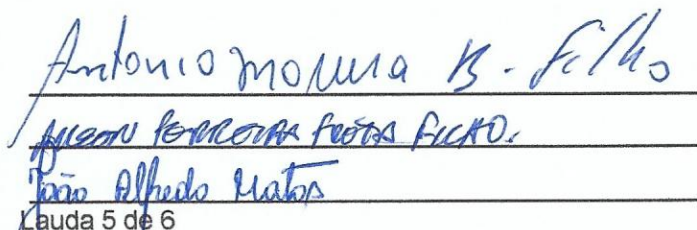 Antonio Moura B. Filho
FERREIRA FROTA FILHO.
João Alfredo Matos
Lauda 5 de 6